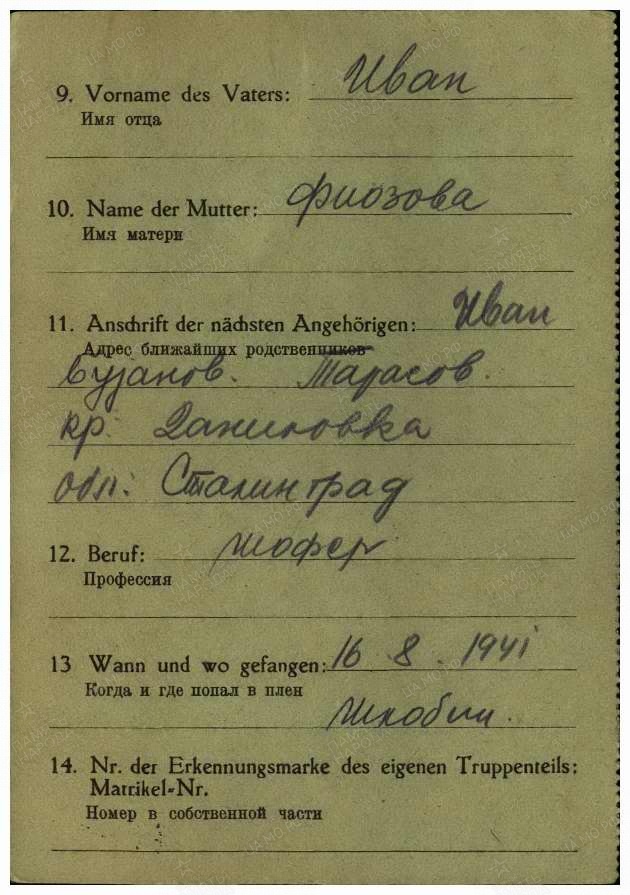 9. Vorname des Vaters: Иван
Имя отца
10. Name der Mutter: Фиозова
Имя матери
11. Anschrift der nächsten Angehörigen: Иван
Адрес ближайших родственников
Тарасов.
кр. Даниловка
обл. Сталинград
12. Beruf: Шофер
Профессия
13 Wann und wo gefangen: 16 8. 1941
Когда и где попал в плен
14. Nr. der Erkennungsmarke des eigenen Truppenteils:
Matrikel-Nr.
Номер в собственной части